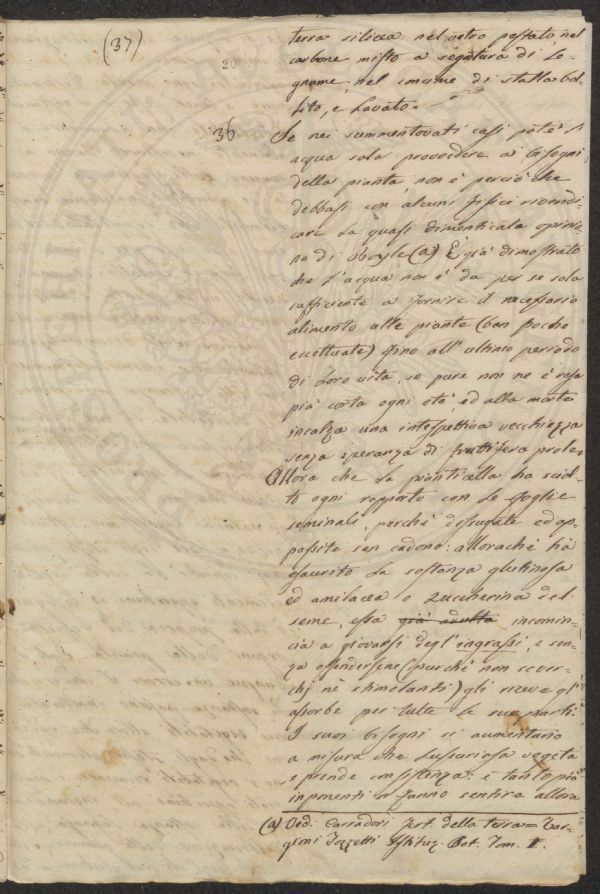 (37)
20
36
terra silicea nel vetro pestato, nel
carbone misto a segatura di Le-
gname, nel concime di stalla bol-
lito, e Lavato.
Se nei summentovati casi potè l'
acqua sola provvedere ai bisogni
della pianta, non è perciò che
debbasi con alcuni fisici rivendi-
care La quasi dimenticata opinio-
ne di Boyle (a) È già dimostrato
che L'acqua non è da per se sola
sufficiente a fornire il necessario
alimento alle piante (ben poche
eccettuate) fino all'ultimo periodo
di Loro vita, se pure non ne è resa
più corta ogni età, ed alla morte
incalza una intespettiva vecchiezza
senza speranza di fruttifera prole.
Allora che La pianticella ha sciol-
to ogni rapporto con Le foglie
seminali, perchè disseugate ed ap-
passite sen cadono: allorachè hà
esaurito La sostanza glutinosa
ed amilacea o zuccherina del
seme, essa già adulta incomin-
cia a giovarsi degl'ingrassi, e sen-
za offendersene (purchè non sover-
chj nè stimolanti) gli riceve gl'
assorbe per tutte Le sue parti.
I suoi bisogni si aumentano
a misura che Lussuriosa vegeta
e prende consistenza: e tanto più
inprmenti si fanno sentire allora
(a) Ved: Carradori fert. della terra = Tar-
gioni Tozzetti Istituz. Bot. Tom. I.